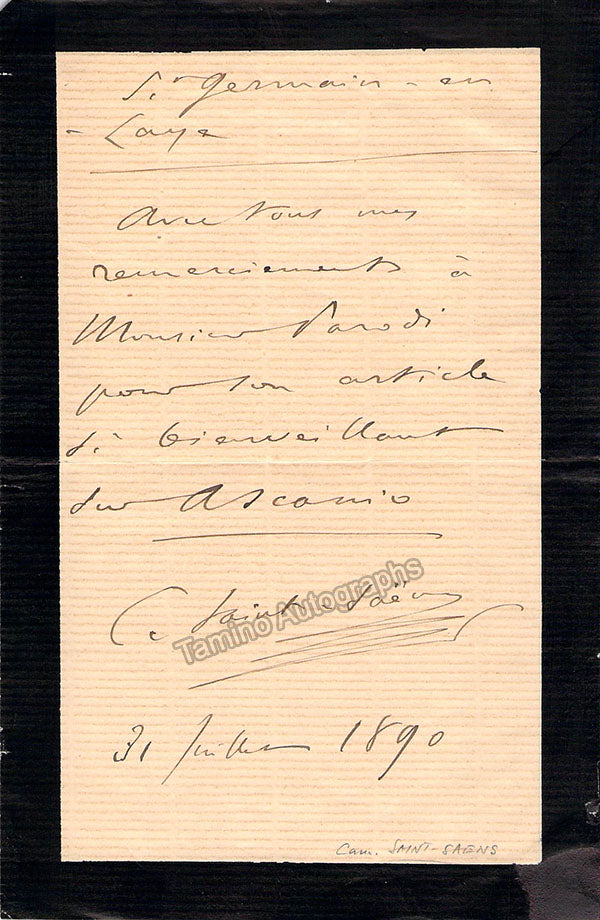 St Germain - en
- Laye
Avec tous mes
remerciements à
Monsieur Parodi
pour son article
si bienveillant
sur Ascanio
C. Saint-Saëns
Tamino Autographs
31 Juillet 1890
Cam. SAINT-SAENS